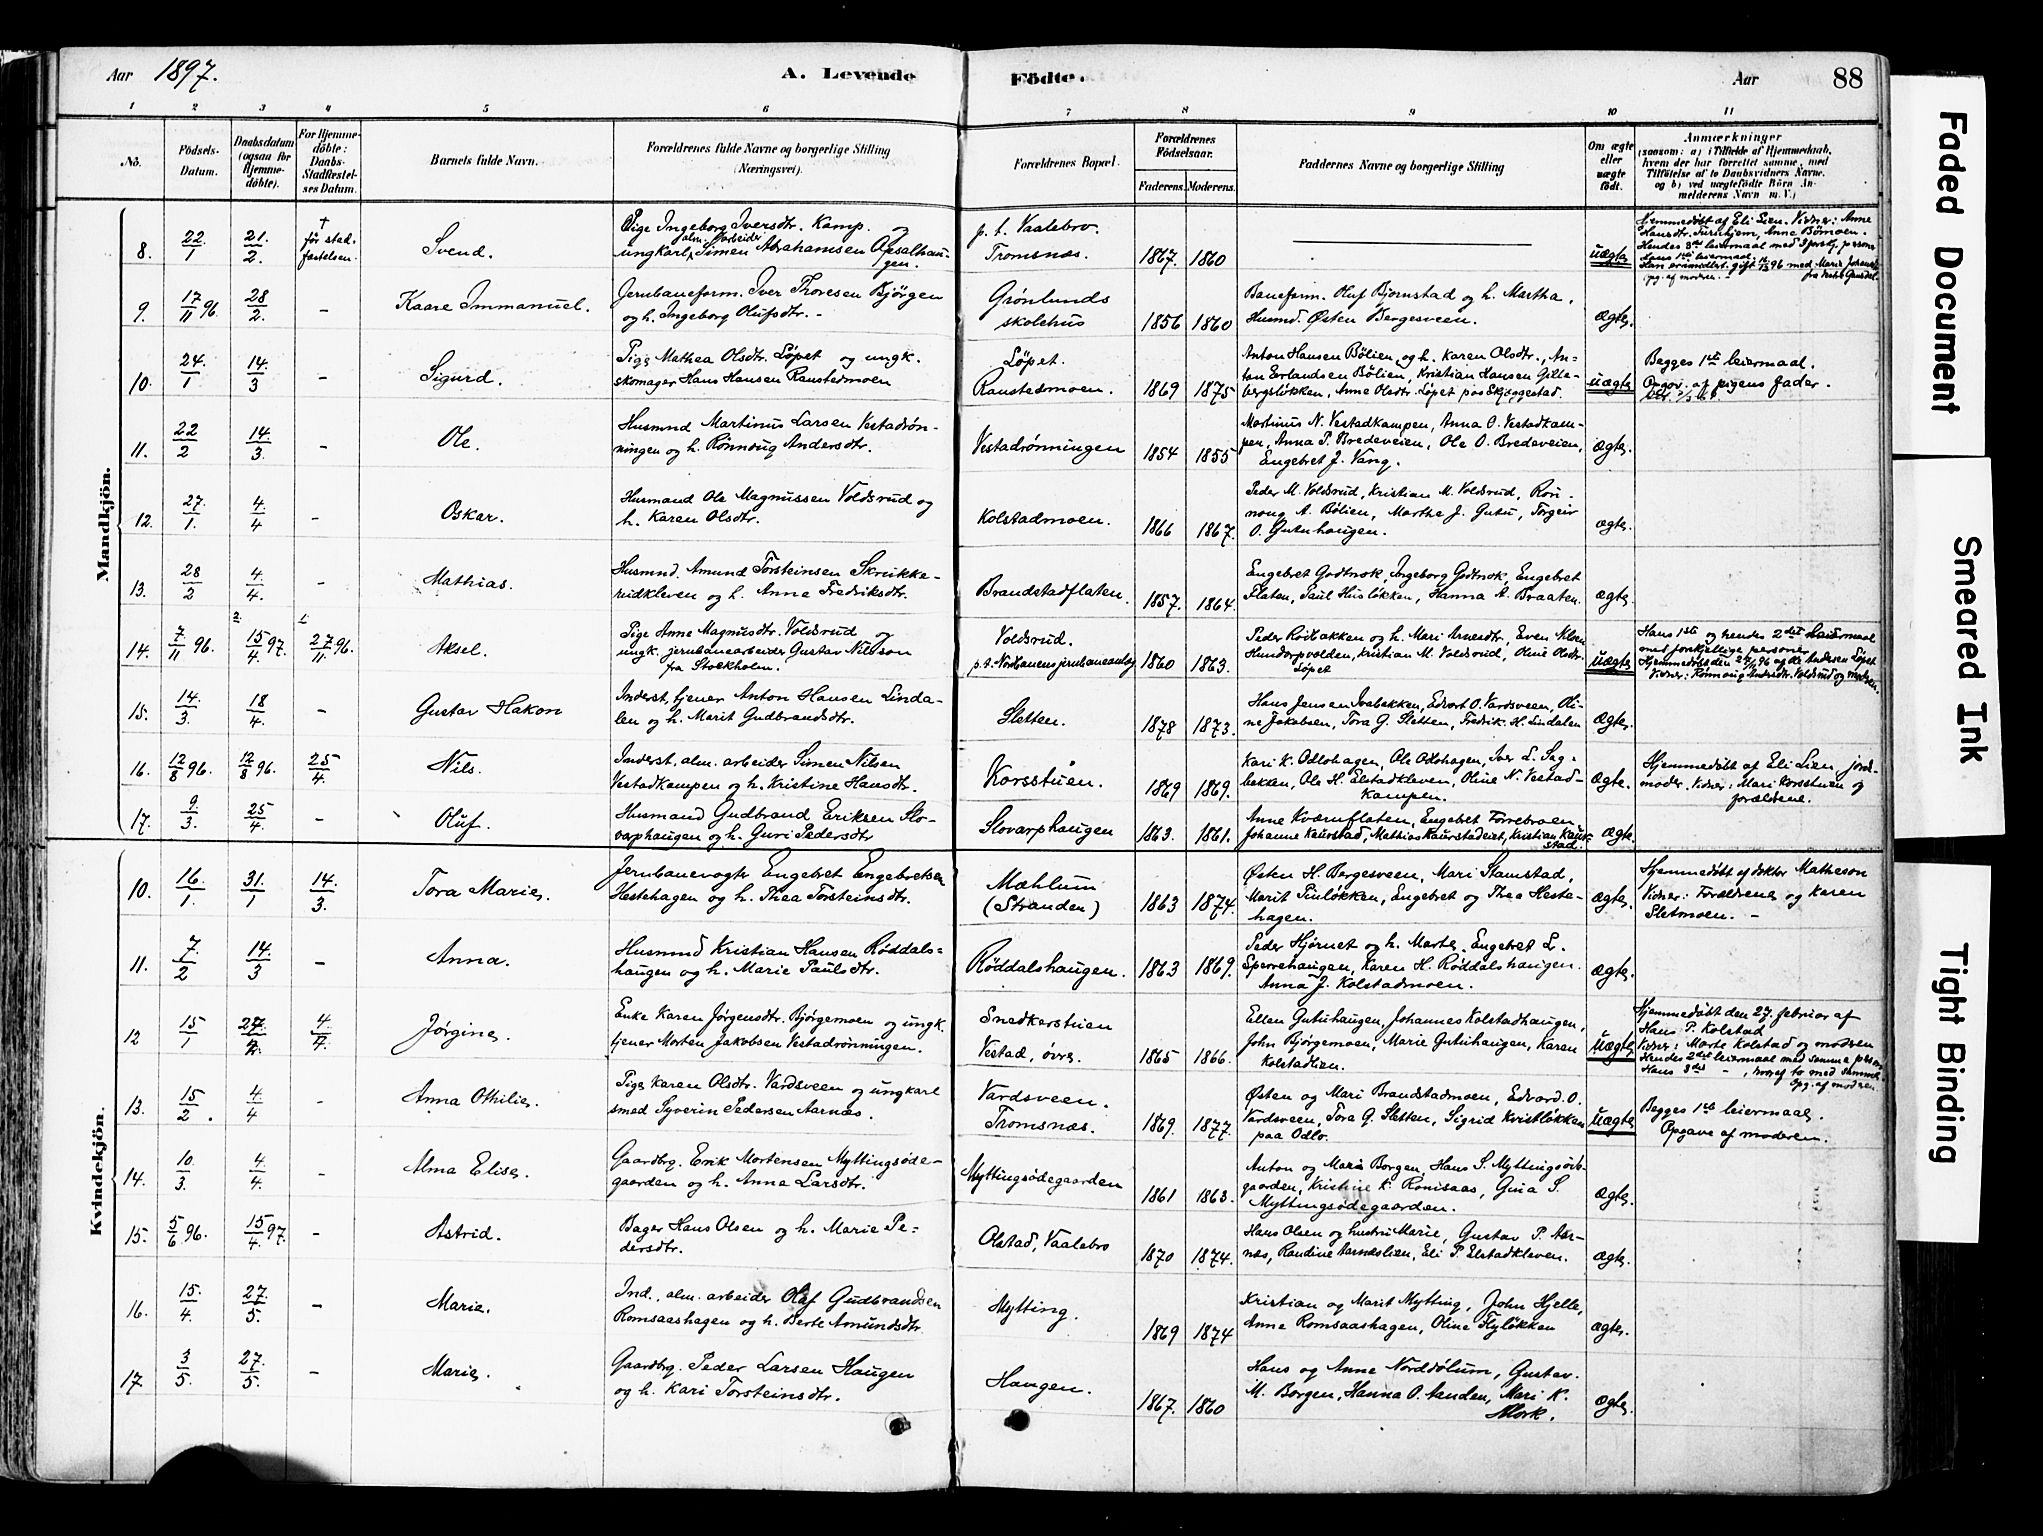 Aar 1897.
A. Levende
Födte.
Aar
88
1 2 3 4 5 6 7 8 9 10 11
No.
Födsels-Datum.
Daabsdatum (ogsaa for Hjemmedöbte).
For Hjemmedöbte: Daabs-Stadfæstelses Datum.
Barnets fulde Navn.
Forældrenes fulde Navne og borgerlige Stilling
(Næringsvei).
Forældrenes Bopæl.
Forældrenes Födselsaar.
Faderens. Moderens.
Faddernes Navne og borgerlige Stilling
Om ægte eller uægte födt.
Anmærkninger
(saasom: a) i Tilfælde af Hjemmedaab,
hvem der har forrettet samme, med
Tilföielse af to Daabsvidners Navne.
og b) ved uægtefödte Börn An-
melderens Navn m. V.)
Mandkjön.
8. 22/1 21./2. † før stadfæstelsen. Svend.
Pige Ingeborg Iversdtr. Kamp. og
ungkarl, alm. arbeider Simen Abrahamsen Opsalhau-
gen.
p. t. Vaalebro.
Tromsnæs. 1867. 1860
uægte
Hjemmedøbt af Eli Lien. Vidner: Anne
Hansdtr. Furuhjem, Anne Bömoen.
Hendes 3die leiermaal med 3 forskj. personer
Hans 1ste leiermaal.
Opg. af modren.
9. 17/11 96. 28/2. - Kaare Immanuel.
Jernbaneform. Iver Thoresen Björgen
og h. Ingeborg Olufsdtr. -
Grönlunds
skolehus 1856 1860
Baneform. Oluf Bjørnstad og h. Martha,
Husmd. Østen Bergesveen.
ægte.
10. 24./1 14./3 - Sigurd.
Pige Mathea Olsdtr. Löpet og ungk.
skomager Hans Hansen Ranstedmoen
Löpet.
Ranstadmoen. 1869 1875
Anton Hansen Bölien, og h. Karen Olsdtr., An-
ton Erlandsen Bölien, Kristian Hansen Gille-
bergslökken, Anne Olsdtr. Löpet paa Skjæggestad.
uægte
Begges 1ste leiermaal.
Opgov. af pigens fader.
11. 22/2 14./3. - Ole.
Husmnd Martinus Larsen Vestadrön-
ningen og h. Rönnaug Andersdtr.
Vestadrönningen 1854 1855
Martinus N. Vestadkampen, Anna O. Vestadkam-
pen, Anna P. Bredeveien, Ole O. Bredeveien,
Engebret J. Vang.
ægte.
12. 27./1. 4./4 - Oskar.
Husmand Ole Magnussen Voldsrud og
h. Karen Olsdtr.
Kolstadmoen. 1866 1867.
Peder M. Voldsrud, Kristian M. Voldsrud, Rön-
naug A. Bölien, Marthe J. Gutu, Torgeir
O. Gutuhaugen.
ægte
13. 28/2 4./4. - Mathias.
Husmnd. Amund Torsteinsen Skrukke-
rudkleven og h. Anne Fredriksdtr.
Brandstadflaten. 1857. 1864.
Engebret Godtnok, Ingeborg Godtnok, Engebret
Flaten, Paul Huslökken, Hanna A. Braaten.
ægte.
14. 7./11 96. 15/4. 97. 27/11. 96. Aksel.
Pige Anne Magnusdtr. Voldsrud og
ungk. jernbanearbeider Gustav Nilsson
fra Stockholm.
Voldsrud.
1860 1863.
Peder Roibakken og h. Mari Arnesdtr, Even Kleven
Hundorpvolden, Kristian M. Voldsrud, Oline Olsdtr
Löpet
uægte
Hans 1ste og hendes 2det leiermaal
med forskjellige personer.
Hjemmedöbt den 27/11 96 af Ole Andersen Löpet
Vidner: Rönnaug Andersdtr. Voldsrud og modren.
15. 14./3. 18/4. - Gustav Hakon
Inderst, tjener Anton Hansen Linda-
len og h. Marit Gudbrandsdtr.
Sletten. 1878 1873.
Hans Jensen Ivabakken, Edvart O. Vardsveen, Oli-
ne Jakobsen, Tora G. Sletten, Fredrik H. Lindalen
ægte.
16. 12/8 96. 12/8 96. 25/4. Nils.
Inderst, alm. arbeider Simen Nilsen
Vestadkampen og h. Kristine Hansdtr.
Korsstuen. 1869 1869.
Kari K. Odlohagen, Ole Odlohagen, Iver L. Sag-
bakken, Ole H. Elstadkleven, Oline N. Vestad-
kampen.
ægte.
Hjemmedöbt af Eli Lien, jord-
moder. Vidner: Mari Korsstuen og
forældrene.
17. 9./3. 25/4. - Oluf.
Husmand Gudbrand Eriksen Slo-
varphaugen og h. Guri Pedersdtr
Slovarphaugen 1863. 1861.
Anne Kværnflaten, Engebret Forrebroen,
Johanne Kaurstad, Mathias Kaurstadeiet, Kristian Kaur-
stad.
ægte.
Kvindekjön.
10. 16/1. 31./1 14./3. Tora Marie.
Jernbanevogter Engebret Engebretsen
Hestehagen og h. Thea Torsteinsdtr.
Mæhlum
(Stranden) 1863 1874.
Østen H. Bergesveen, Mari Stamstad,
Marit Tinlökken, Engebret og Thea Heste-
hagen.
ægte.
Hjemmedöbt af doktor Matheson
Vidner: Forældrene og Karen
Sletmoen. -
11. 7./2 14./3 - Anna.
Husmnd Kristian Hansen Röddals-
haugen og h. Marie Paulsdtr.
Röddalshaugen. 1863 1869.
Peder Hjörnet og h. Marte. Engebret L.
Sperrehaugen, Karen H. Röddalshaugen.
Anna J. Kolstadmoen.
ægte.
12 15/1 27./2. 4./4. Jörgine.
Enke Karen Jörgensdtr. Bjørgemoen og ungk.
tjener Morten Jakobsen Vestadrönningen.
Snedkerstuen
Vestad, övre. 1865 1866.
Ellen Gutuhaugen, Johannes Kolstadhaugen,
John Bjørgemoen, Marie Gutuhaugen, Karen
Kolstadlien.
uægte
Hjemmedöbt den 27. februar af
Hans P. Kolstad
Vidner: Marte Kolstad og modren
Hendes 2det leiermaal med samme person
Hans 3die -, hvoraf to med samme.
Opg. af modren.
13. 15/2. 4./4 - Anna Othilie.
Pige Karen Olsdtr. Vardsveen og ungkarl
smed Syverin Pedersen Aarnæs.
Vardsveen.
Tromsnæs. 1869. 1877.
Østen og Mari Brandstadmoen, Edvard O.
Vardsveen, Tora G. Sletten, Sigrid Kvistlökken
paa Odlo.
uægte
Begges 1ste leiermaal.
Opgave af moderen.
14. 10./3. 4./4. - Alma Elise.
Gaardbrg. Erik Mortensen Myttingsöde-
gaarden og h. Anne Larsdtr.
Myttingsödegaarden 1861 1863.
Anton og Marie Borgen, Hans S. Myttingsöde-
gaarden, Kristine K. Romsaas, Gina S.
Myttingsödegaarden.
ægte.
15. 5/6 96. 15/4. 97. - Astrid.
Bager Hans Olsen og h. Marie Pe-
dersdtr.
Olstad, Vaalebro 1870 1874.
Hans Olsen og hustru Marie, Gustav P. Aar-
næs, Randine Aarnæslien, Eli P. Elstadkleven.
ægte.
16. 15./4. 27./5. - Marie.
Ind., alm. arbeider Olaf Gudbrandsen
Romsaashagen og h. Berte Amundsdtr
Mytting. 1869 1874
Kristian og Marit Mytting, John Hjelle,
Anne Romsaashagen, Oline Flylökken
ægte.
17. 3/5. 27./5. - Marie.
Gaardbrg. Peder Larsen Haugen
og h. Kari Torsteinsdtr.
Haugen. 1867. 1860
Hans og Anne Norddölum, Gustav
M. Borgen, Hanna O. Aanden, Mari K.
Mork.
ægte.
Faded Document
Smeared Ink
Tight Binding